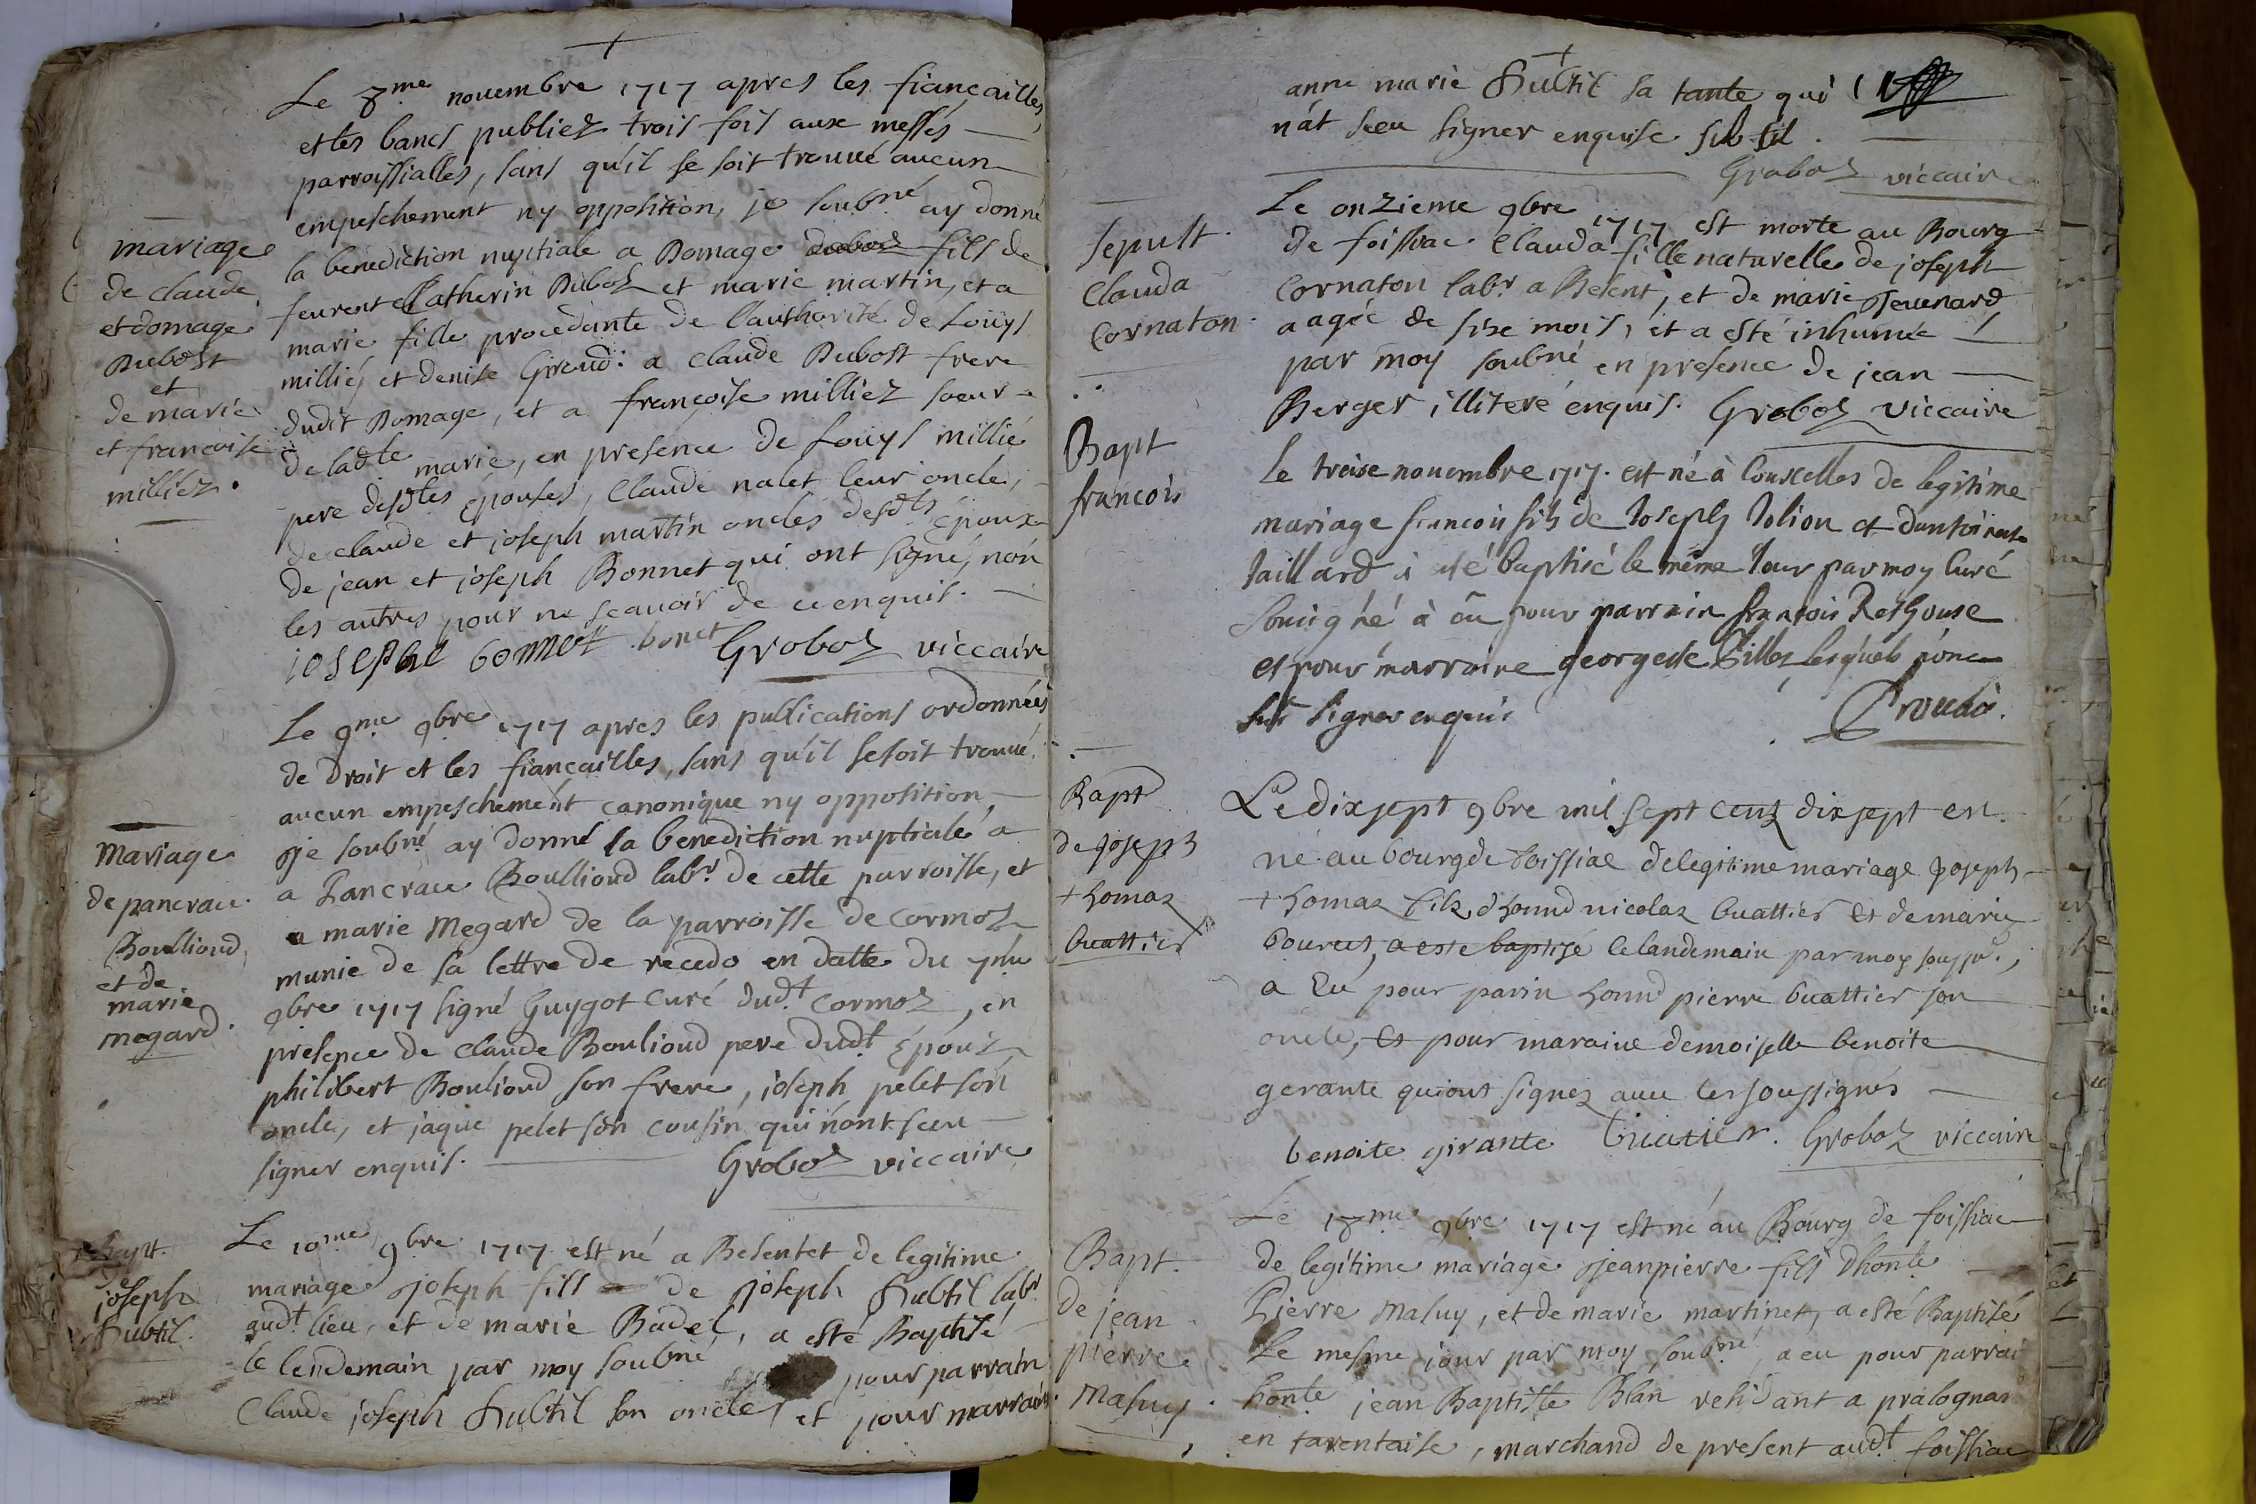 Le 8me novembre 1717 apres les fiancailles,
et les bancs publiez trois fois aux messes
parroissialles, sans qu'il se soit trouué aucun
empeschement ny opposition, je soubné ay donné
mariage
de claude
et domage
Dubost
et
de marie
et francoise
milliez.
la benediction nuptiale a Domage dubost fils de
feurent Catherin Dubost et marie martin, et a
marie fille procedante de l'authorité de Louys
milliez et denise Giraud: a claude Dubost frere
dudit Domage, et a francoise milliez soeur
de ladte marie, en presence de Louys millié
pere desdtes épouses, Claude nalet leur oncle,
de claude et joseph martin oncles desdts époux
de jean et joseph Bonnet qui ont signé, non
les autres pour ne scauoir de ce enquis.
josephe bonnet bonet Groboz viccaire
Le 9me 9bre 1717 apres les publications ordonnées
de droit et les fiancailles, sans qu'il se soit trouué
aucun empeschement canonique ny opposition
Mariage
de pancrace
Boulliond
et de
marie
megard.
je soubné ay donné la benediction nuptiale a
a Pancrace Boulliond labr de cette parroisse, et
a marie Megard de la parroisse de Cormoz
munie de sa lettre de recedo en datte du
9bre 1717 signé Guygot Curé dudt Cormoz, en
presence de Claude Bouliond pere dudt épouz,
philibert Bouliond son frere, joseph pelet son
oncle, et jaque pelet son cousin qui n'ont sceu
signer enquis. Groboz viccaire
Bapt.
de
joseph
Subtil.
Le 10me 9bre 1717 est né a Besentet de legitime
mariage joseph fils de joseph Subtil labr
audt lieu, et de marie Badel, a esté Baptisé
le lendemain par moy soubné pour parrain
Claude joseph Subtil son oncle, et pour marraine
anne marie Subtil sa tante qui
n'at sceu signer enquise subtil.
Groboz viccaire
sepult.
Clauda
Cornaton.
Le onzieme 9bre 1717 est morte au Bourg
de foissiac Clauda fille naturelle de joseph
Cornaton labr a Besent, et de marie Jeuenard
aagée de sixe mois, et a esté inhumé
par moy soubné en presence de jean
Berger illiteré enquis. Groboz viccaire
Bapt
francois
le treise nouembre 1717. est né à Courcelles de legitime
mariage francois fils de Joseph Jolion et
Jaillard à esté baptisé le même Jour par moy Curé
Soussigné à eu pour parrain francois
et pour marraine georgette Billet, lesquels n'ont
sceu signer enquis
Bapt
de joseph
thomas
buattier
Le dix sept 9bre mil sept centz dix sept est
né au bourg de foissiac de legitime mariage joseph
thomas fils d'honnd nicolas buattier et de marie
bouvet, a esté baptisé le landemain par moy soussné,
a eu pour parin honnd pierre buattier son
oncle, et pour maraine demoiselle benoite
gerante qui ont signez auec les soussignés
benoite girante buatier. Groboz viccaire
Bapt.
de jean
pierre
Masuy.
Le 18me 9bre 1717 est né au Bourg de foissiac
de legitime mariage jeanpierre fils d'honte
Pierre Masuy, et de marie martinet, a esté Baptisé
Le mesme jour par moy soubné, a eu pour parrai
honte jean Baptiste Blan residant a pralognan
en tarentaise, marchand de present audt foissiac